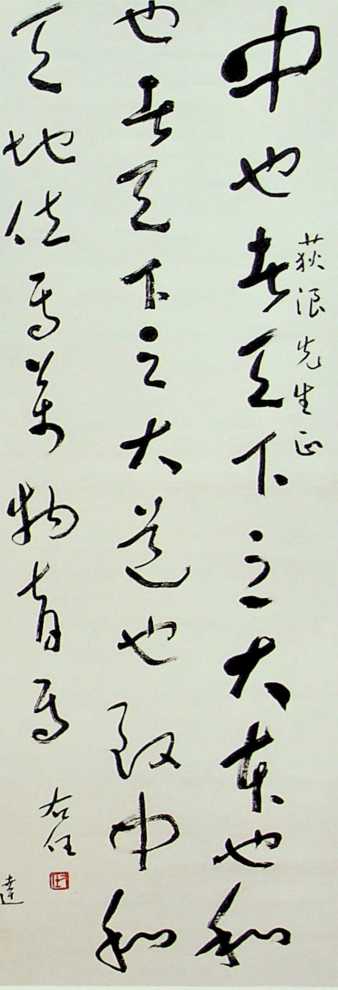 荻浪先生正
中也者天下之大本也和
也者天下之大道也致中和
天地位焉萬物育焉
右任
達